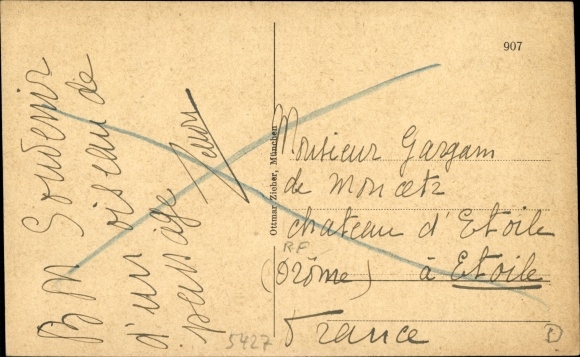 Bon Souvenir
d'un oiseau de
passage
907
Ottmar Zieher, München
Monsieur Gargam
de Moncetz
chateau d'Etoile
RF
(Drôme) à Etoile
France
5427